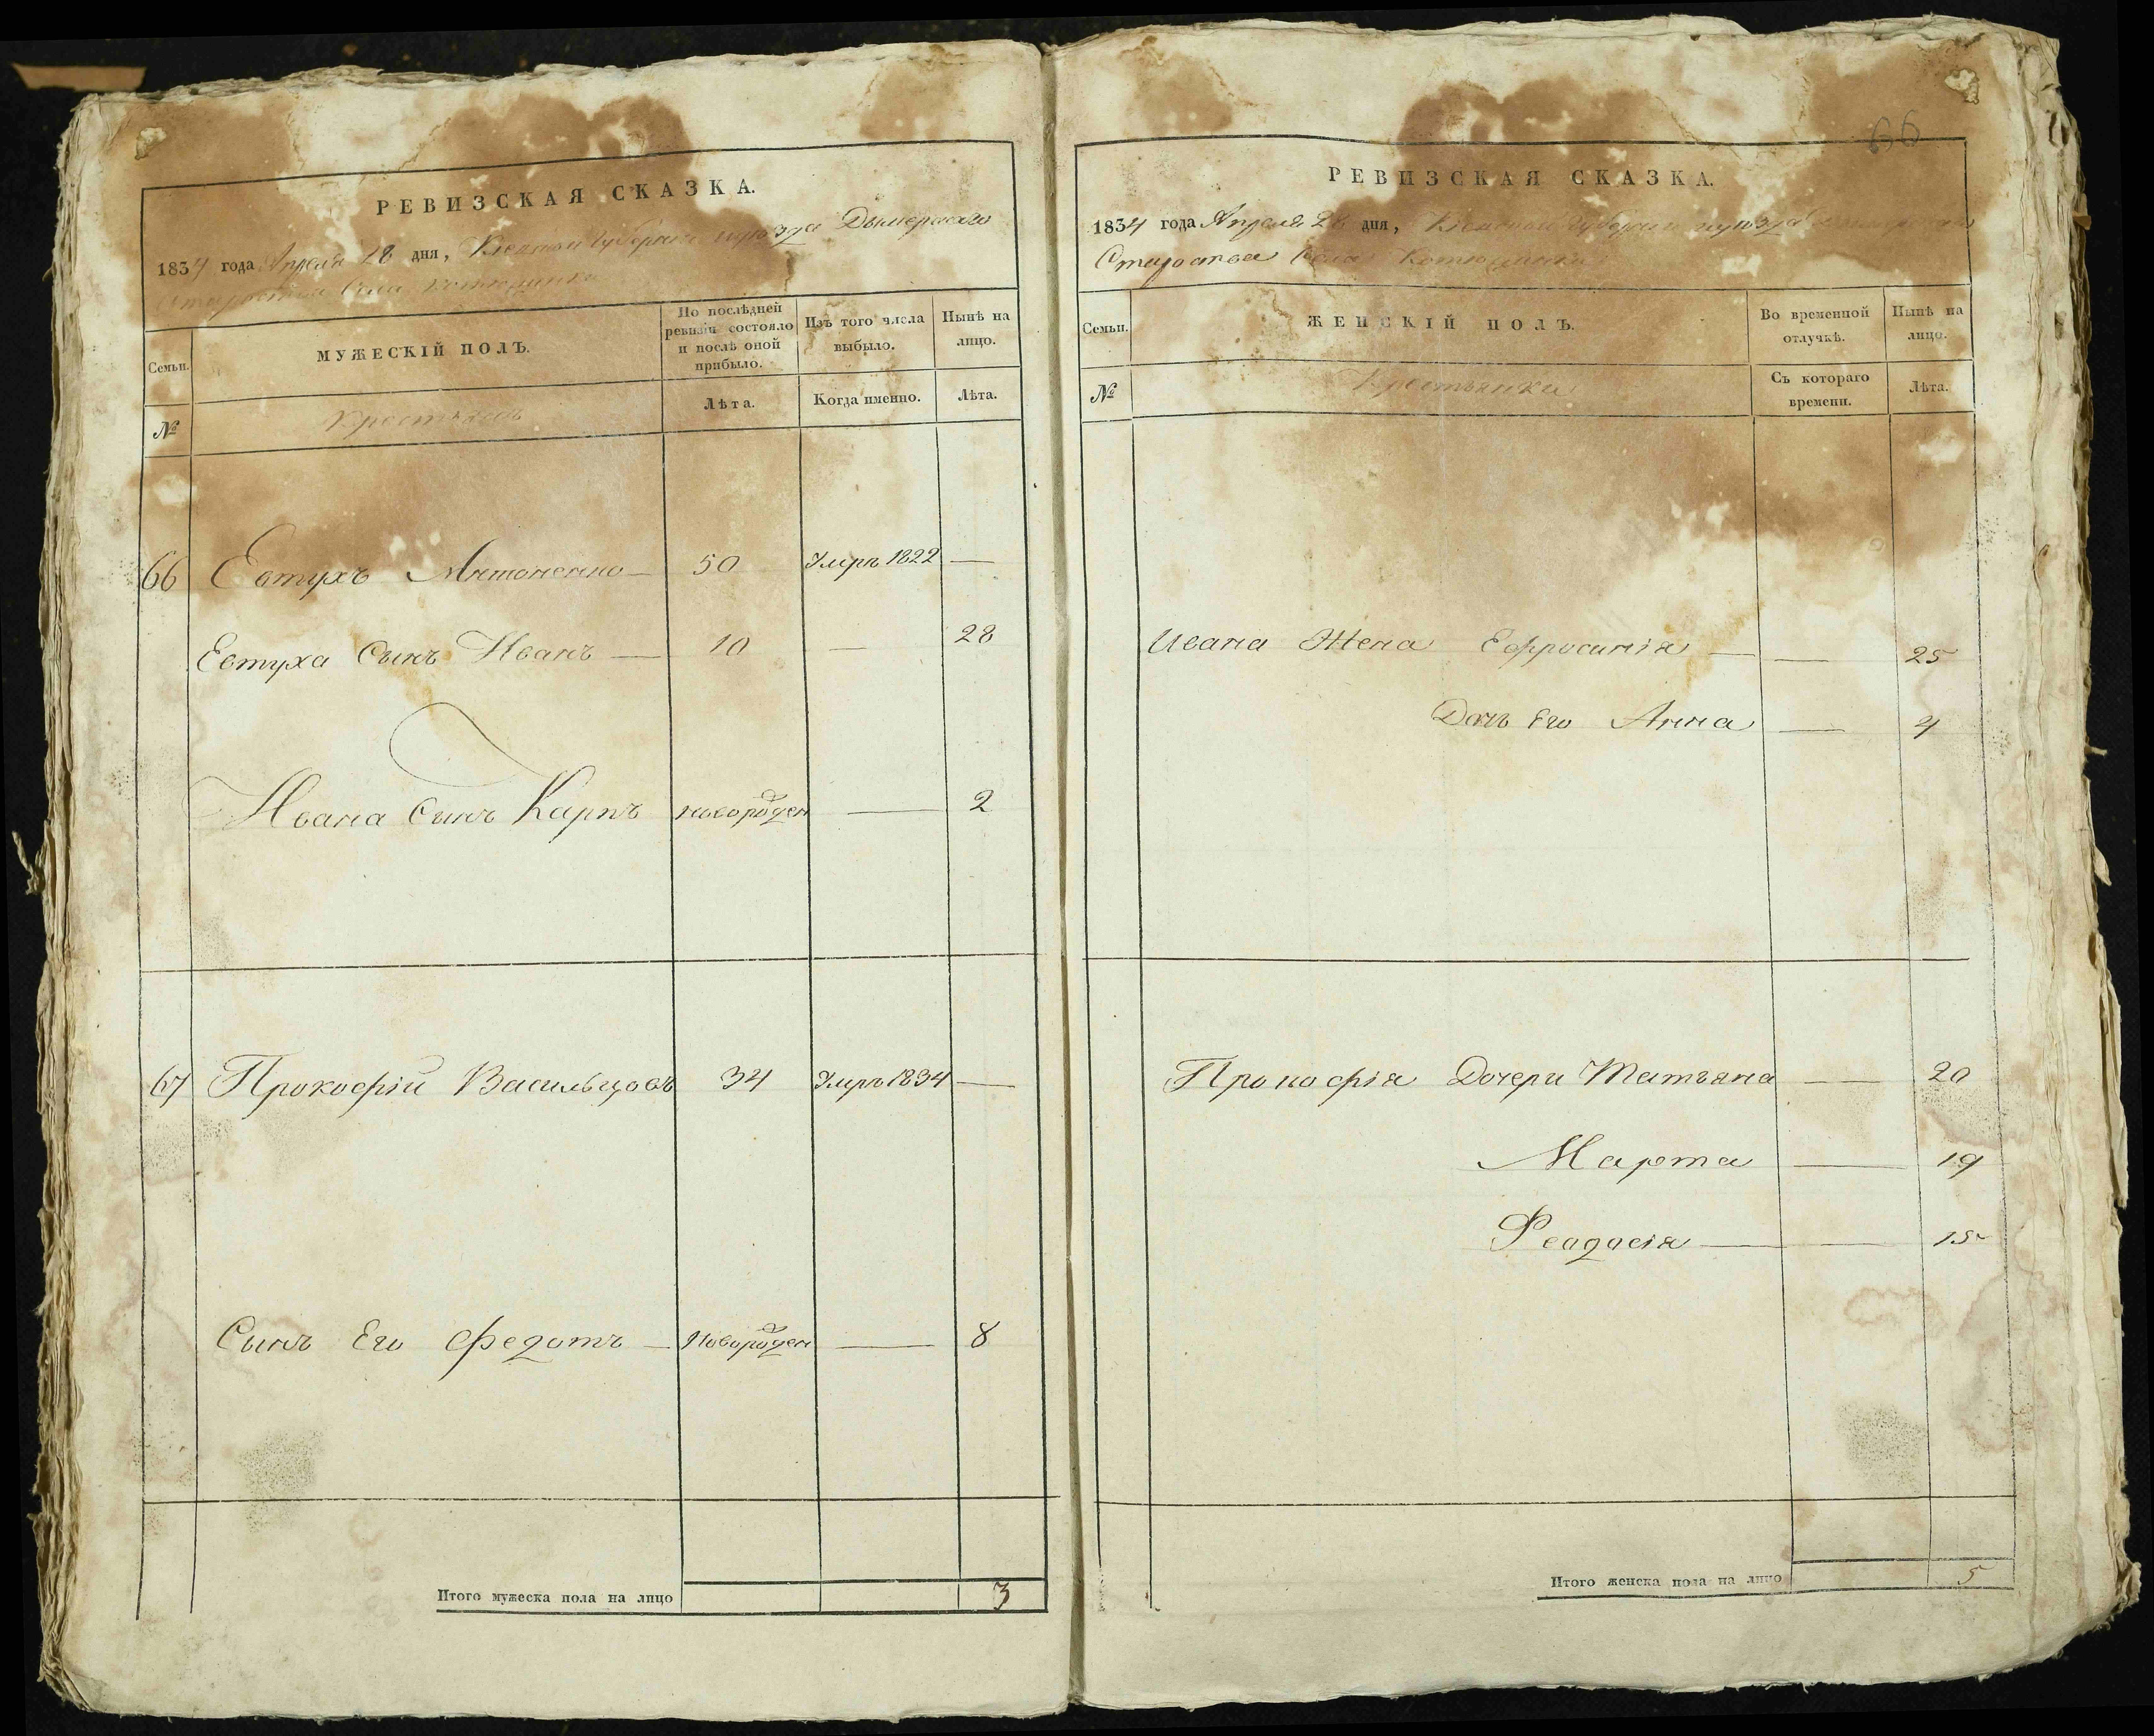 РЕВИЗСКАЯ СКАЗКА.
1834 года Апреля 28 дня, Киевской Губернии и уезда Дымерского
Староства Села Котюжинки
Семьи.
МУЖЕСКІЙ ПОЛЪ.
По послѣдней ревизіи состояло и послѣ оной прибыло.
Изъ того числа выбыло.
Нынѣ на лицо.
№
Крестьяне
Лѣта.
Когда именно.
Лѣта.
66 Евтухъ Антоненко — 50 Умръ 1822 —
Евтуха Сынъ Иванъ — 10 — 28
Ивана Сынъ Карпъ новорожден — 2
67 Прокофій Васильцовъ 34 Умръ 1834 —
Сынъ Его Федотъ — Новорожден — 8
Итого мужеска пола на лицо 3
66
РЕВИЗСКАЯ СКАЗКА.
1834 года Апреля 28 дня, Киевской Губернии и уезда
Староства Села Котюжинки
Семьи.
ЖЕНСКІЙ ПОЛЪ.
Во временной отлучкѣ.
Нынѣ на лицо.
№
Крестьянки
Съ котораго времени.
Лѣта.
Ивана Жена Ефросинія — — 25
Дочь Его Анна — 4
Прокофія Дочери Татьяна — 20
Марта — 19
Феодосія — — 15
Итого женска пола на лицо 5